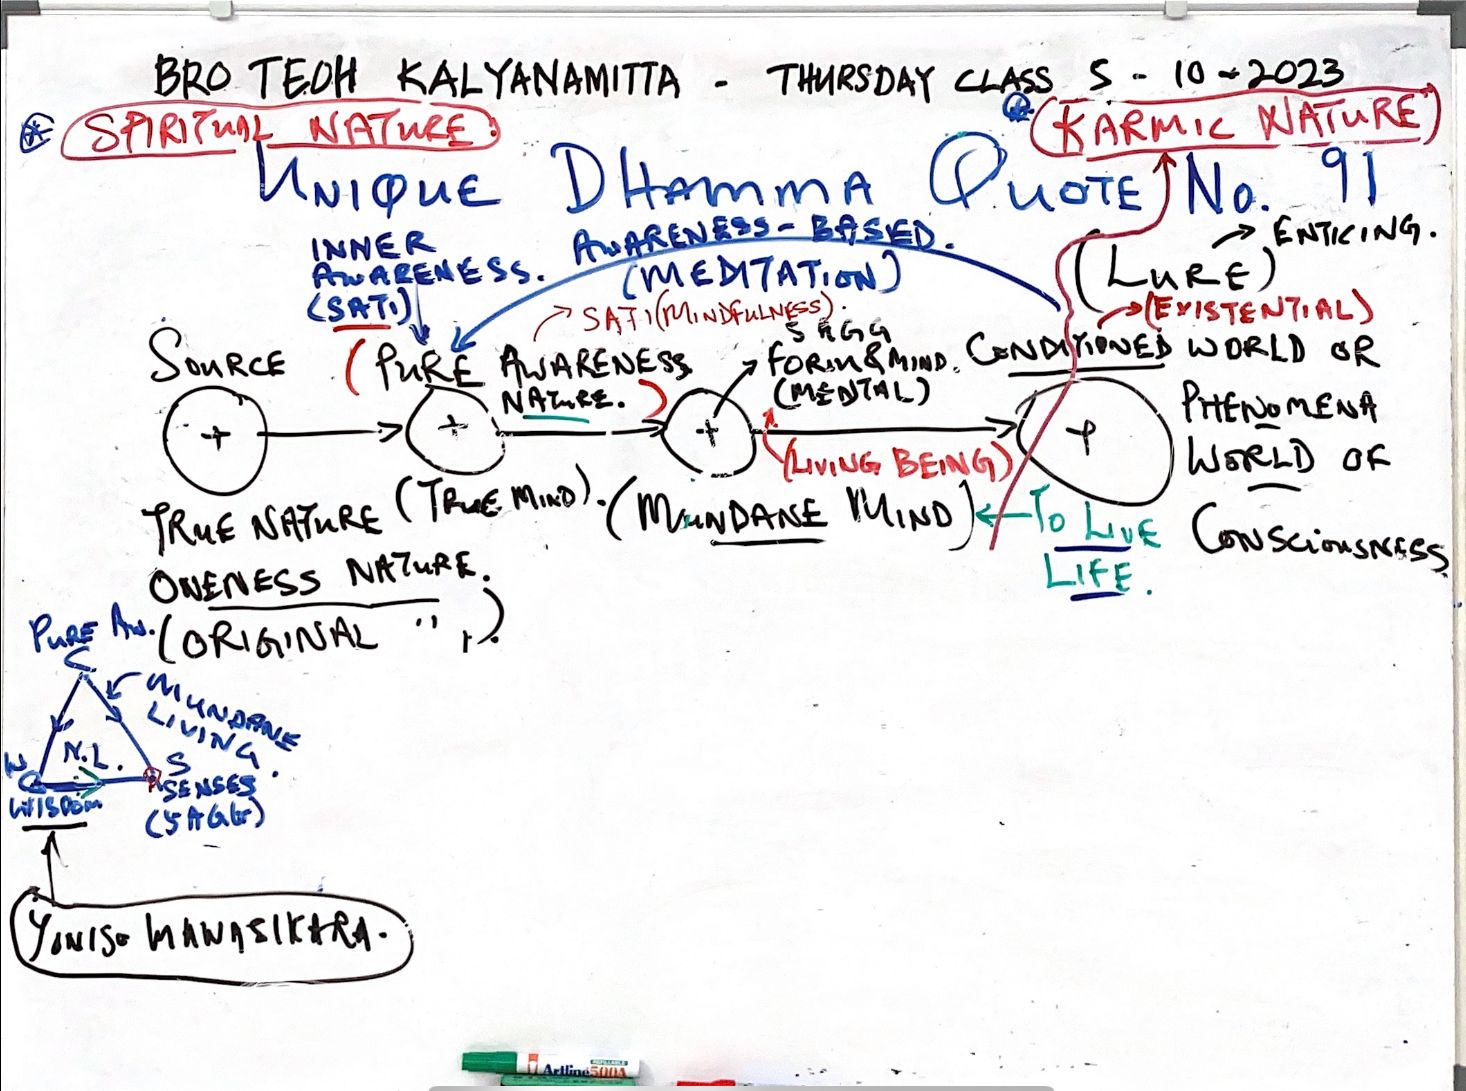 BRO TEOH KALYANAMITTA - THURSDAY CLASS 5 - 10 - 2023
SPIRITUAL NATURE:
KARMIC NATURE
UNIQUE DHAMMA QUOTE No. 91
INNER
AWARENESS.
(SATI)
AWARENESS-BASED.
(MEDITATION)
(LURE) → ENTICING.
→ (EXISTENTIAL)
→ SATI (MINDFULNESS).
SOURCE
(PURE AWARENESS
NATURE.)
5 AGG
FORM & MIND.
(MENTAL)
CONDITIONED WORLD OR
PHENOMENA
WORLD OF
CONSCIOUSNESS
+ → + → + → +
(LIVING BEING)
TRUE NATURE
ONENESS NATURE.
(ORIGINAL " ,,).
(TRUE MIND).
(MUNDANE MIND)
← TO LIVE
LIFE.
PURE AW.
C
MUNDANE
LIVING.
N.L.
W
WISDOM
S
SENSES
(5 AGG)
YONISO MANASIKARA.
Artline 500A